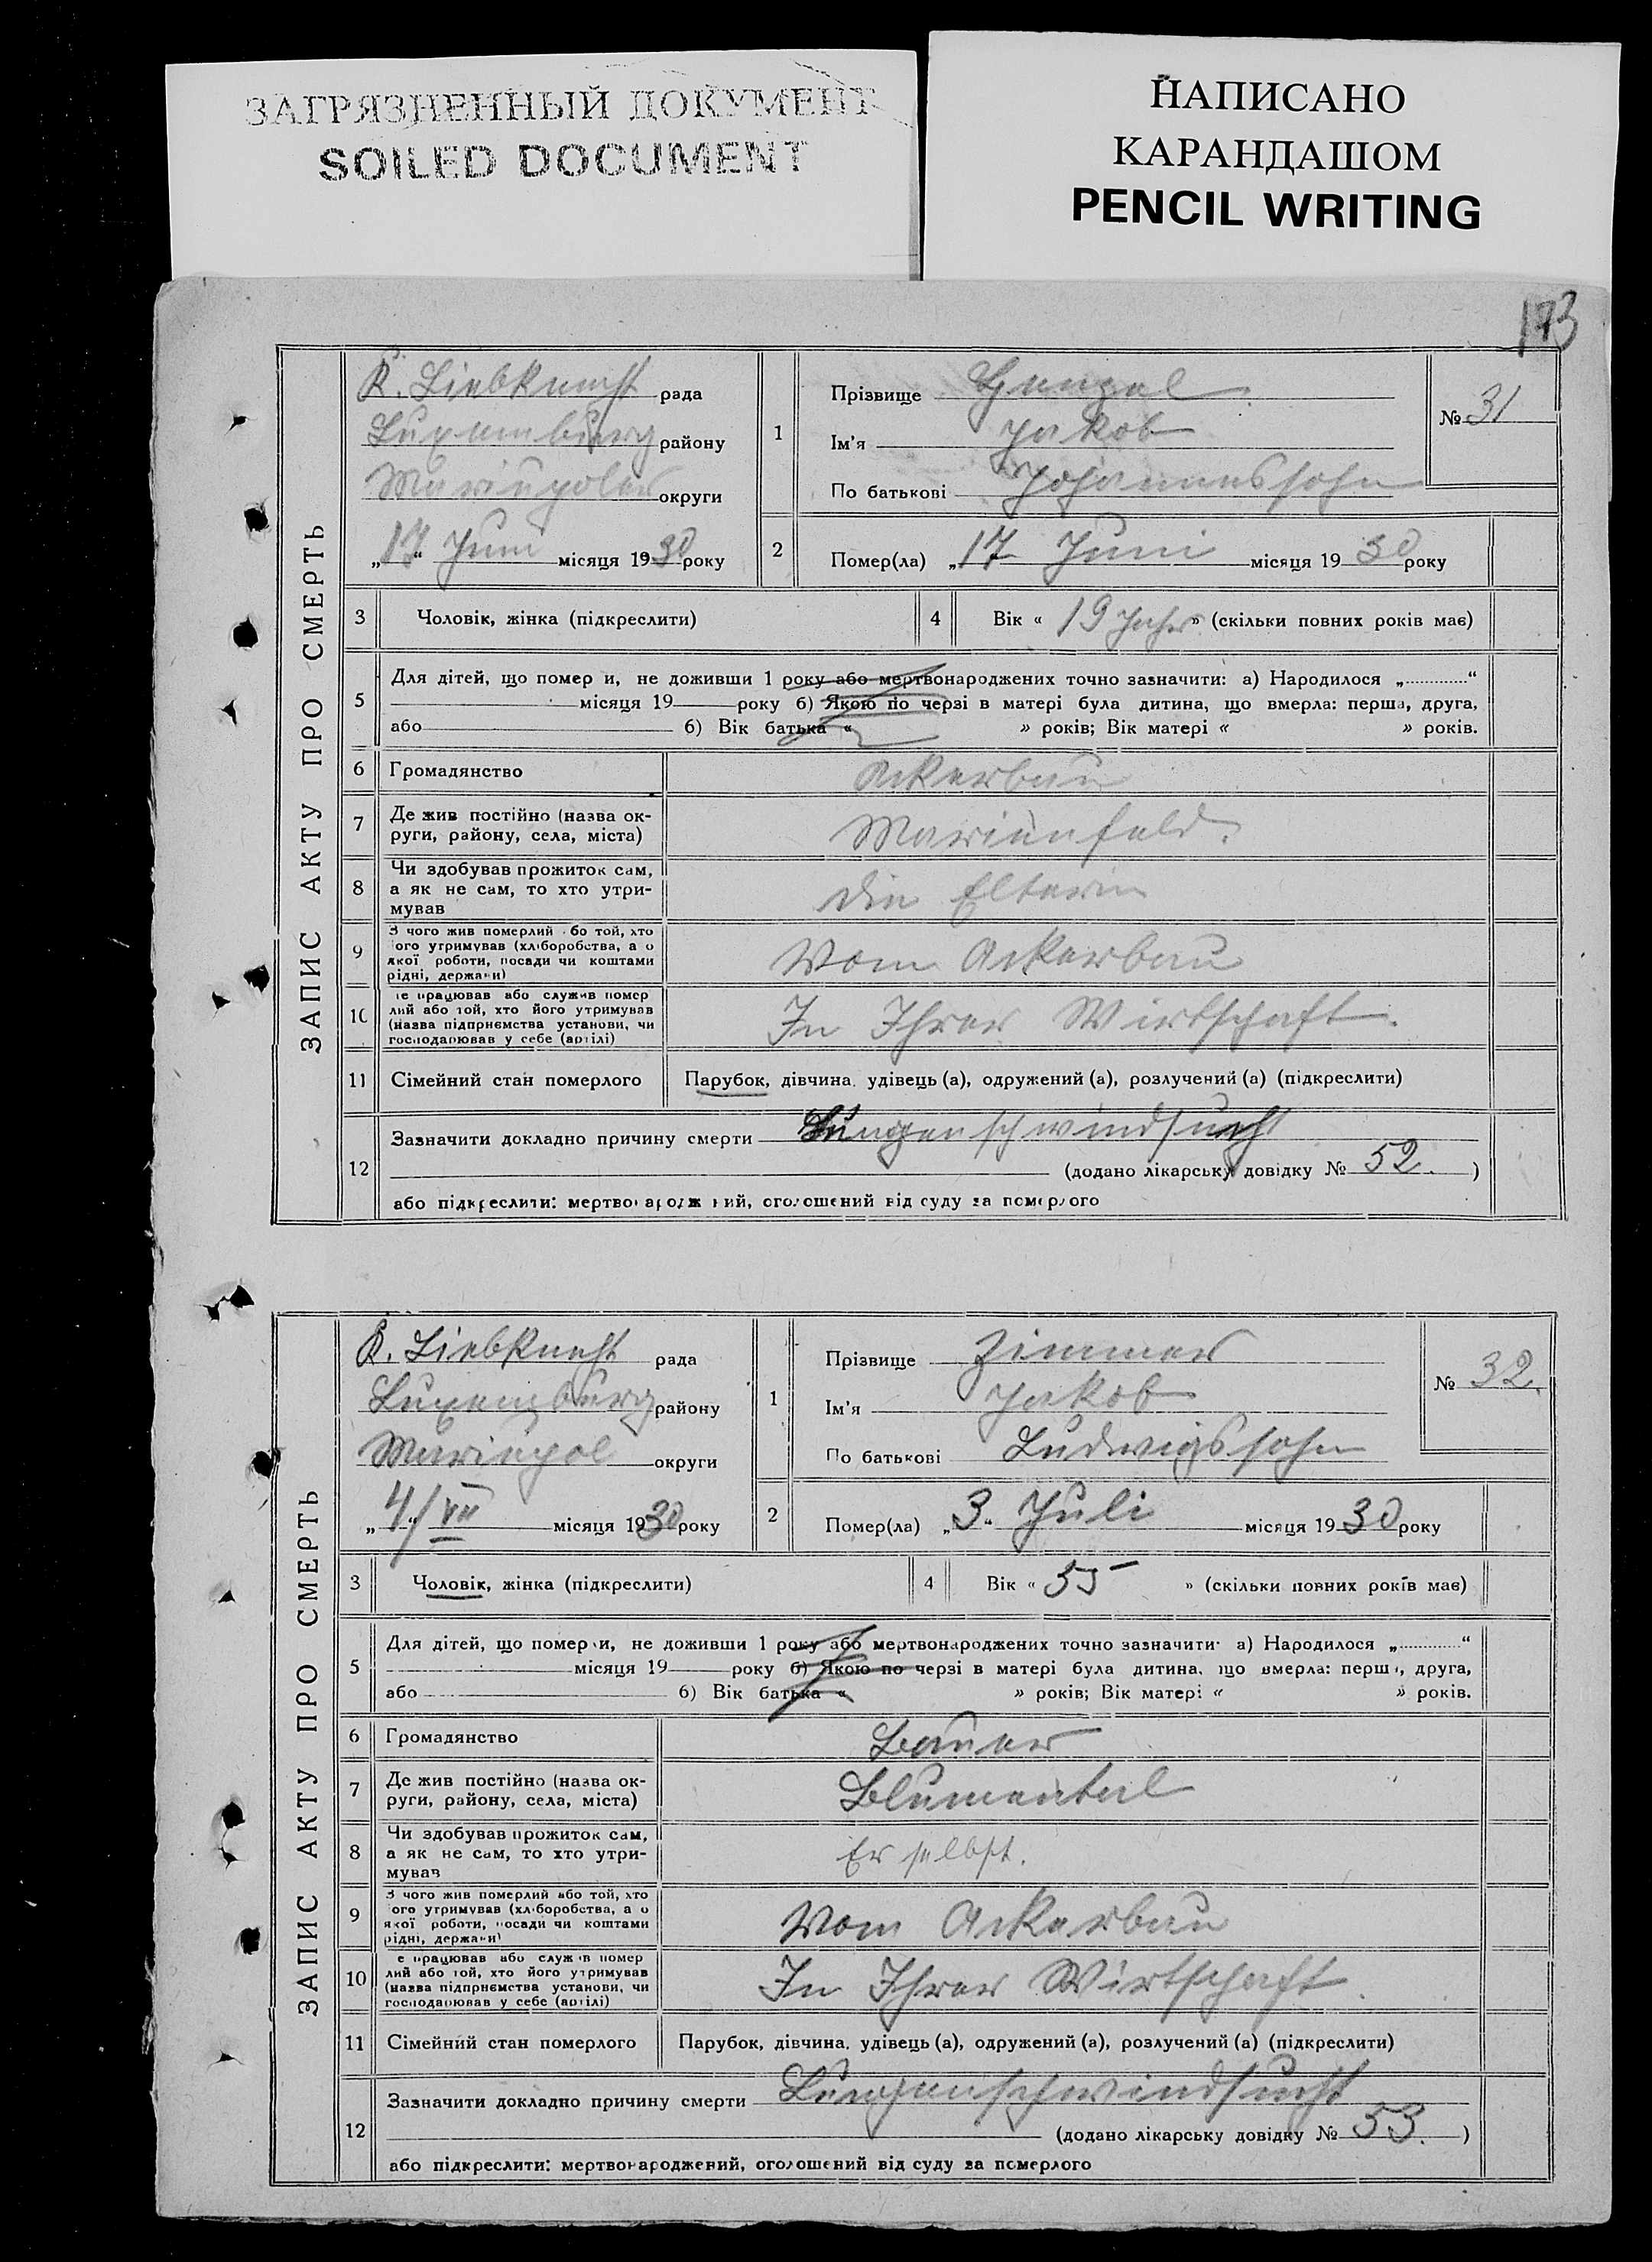 ЗАГРЯЗНЕННЫЙ ДОКУМЕНТ
SOILED DOCUMENT
НАПИСАНО
КАРАНДАШОМ
PENCIL WRITING
173
ЗАПИС АКТУ ПРО СМЕРТЬ
K. Liebknecht рада
Luxemburg району
Mariupoler округи
„17“ Juni місяця 1930 року
1
Прізвище
Ім'я Jakob
По батькові Johannessohn
№ 31
2
Помер(ла) „17“ Juni місяця 1930 року
3 Чоловік, жінка (підкреслити)
4 Вік « 19 Jahr » (скільки повних років має)
5
Для дітей, що помер и, не доживши 1 року або мертвонароджених точно зазначити: а) Народилося „ “
місяця 19 року б) Якою по черзі в матері була дитина, що вмерла: перша, друга,
або б) Вік батька « » років; Вік матері « » років.
6 Громадянство Ackerbau
7 Де жив постійно (назва ок-
руги, району, села, міста) Marienfeld.
8 Чи здобував прожиток сам,
а як не сам, то хто утри-
мував die Eltern
9 З чого жив померлий бо той, хто
ого утримував (хліборобства, а о
якої роботи, посади чи коштами
рідні, держави) Vom Ackerbau
10 е працював або служив помер
лий або той, хто його утримував
(назва підприємства установи, чи
господарював у себе (артілі) In Ihrer Wirtschaft.
11 Сімейний стан померлого Парубок, дівчина, удівець (а), одружений (а), розлучений (а) (підкреслити)
12 Зазначити докладно причину смерти Lungenschwindsucht
(додано лікарську довідку № 52. )
або підкреслити: мертвонароджений, оголошений від суду за померлого
ЗАПИС АКТУ ПРО СМЕРТЬ
K. Liebknecht рада
Luxemburg району
Mariupol округи
„4/“ VII місяця 1930 року
1
Прізвище Zimmer
Ім'я Jakob
По батькові Ludwigssohn
№ 32.
2
Помер(ла) „3“ Juli місяця 1930 року
3 Чоловік, жінка (підкреслити)
4 Вік « 55 » (скільки повних років має)
5
Для дітей, що померли, не доживши 1 року або мертвонароджених точно зазначити: а) Народилося „ “
місяця 19 року б) Якою по черзі в матері була дитина, що вмерла: перша, друга,
або б) Вік батька « » років; Вік матері « » років.
6 Громадянство Bauer
7 Де жив постійно (назва ок-
руги, району, села, міста) Blumental
8 Чи здобував прожиток сам,
а як не сам, то хто утри-
мував Er selbst.
9 З чого жив померлий або той, хто
ого утримував (хліборобства, а о
якої роботи, посади чи коштами
рідні, держави) Vom Ackerbau
10 е працював або служив помер
лий або той, хто його утримував
(назва підприємства установи, чи
господарював у себе (артілі) In Ihrer Wirtschaft.
11 Сімейний стан померлого Парубок, дівчина, удівець (а), одружений (а), розлучений (а) (підкреслити)
12 Зазначити докладно причину смерти Lungenschwindsucht
(додано лікарську довідку № 53. )
або підкреслити: мертвонароджений, оголошений від суду за померлого